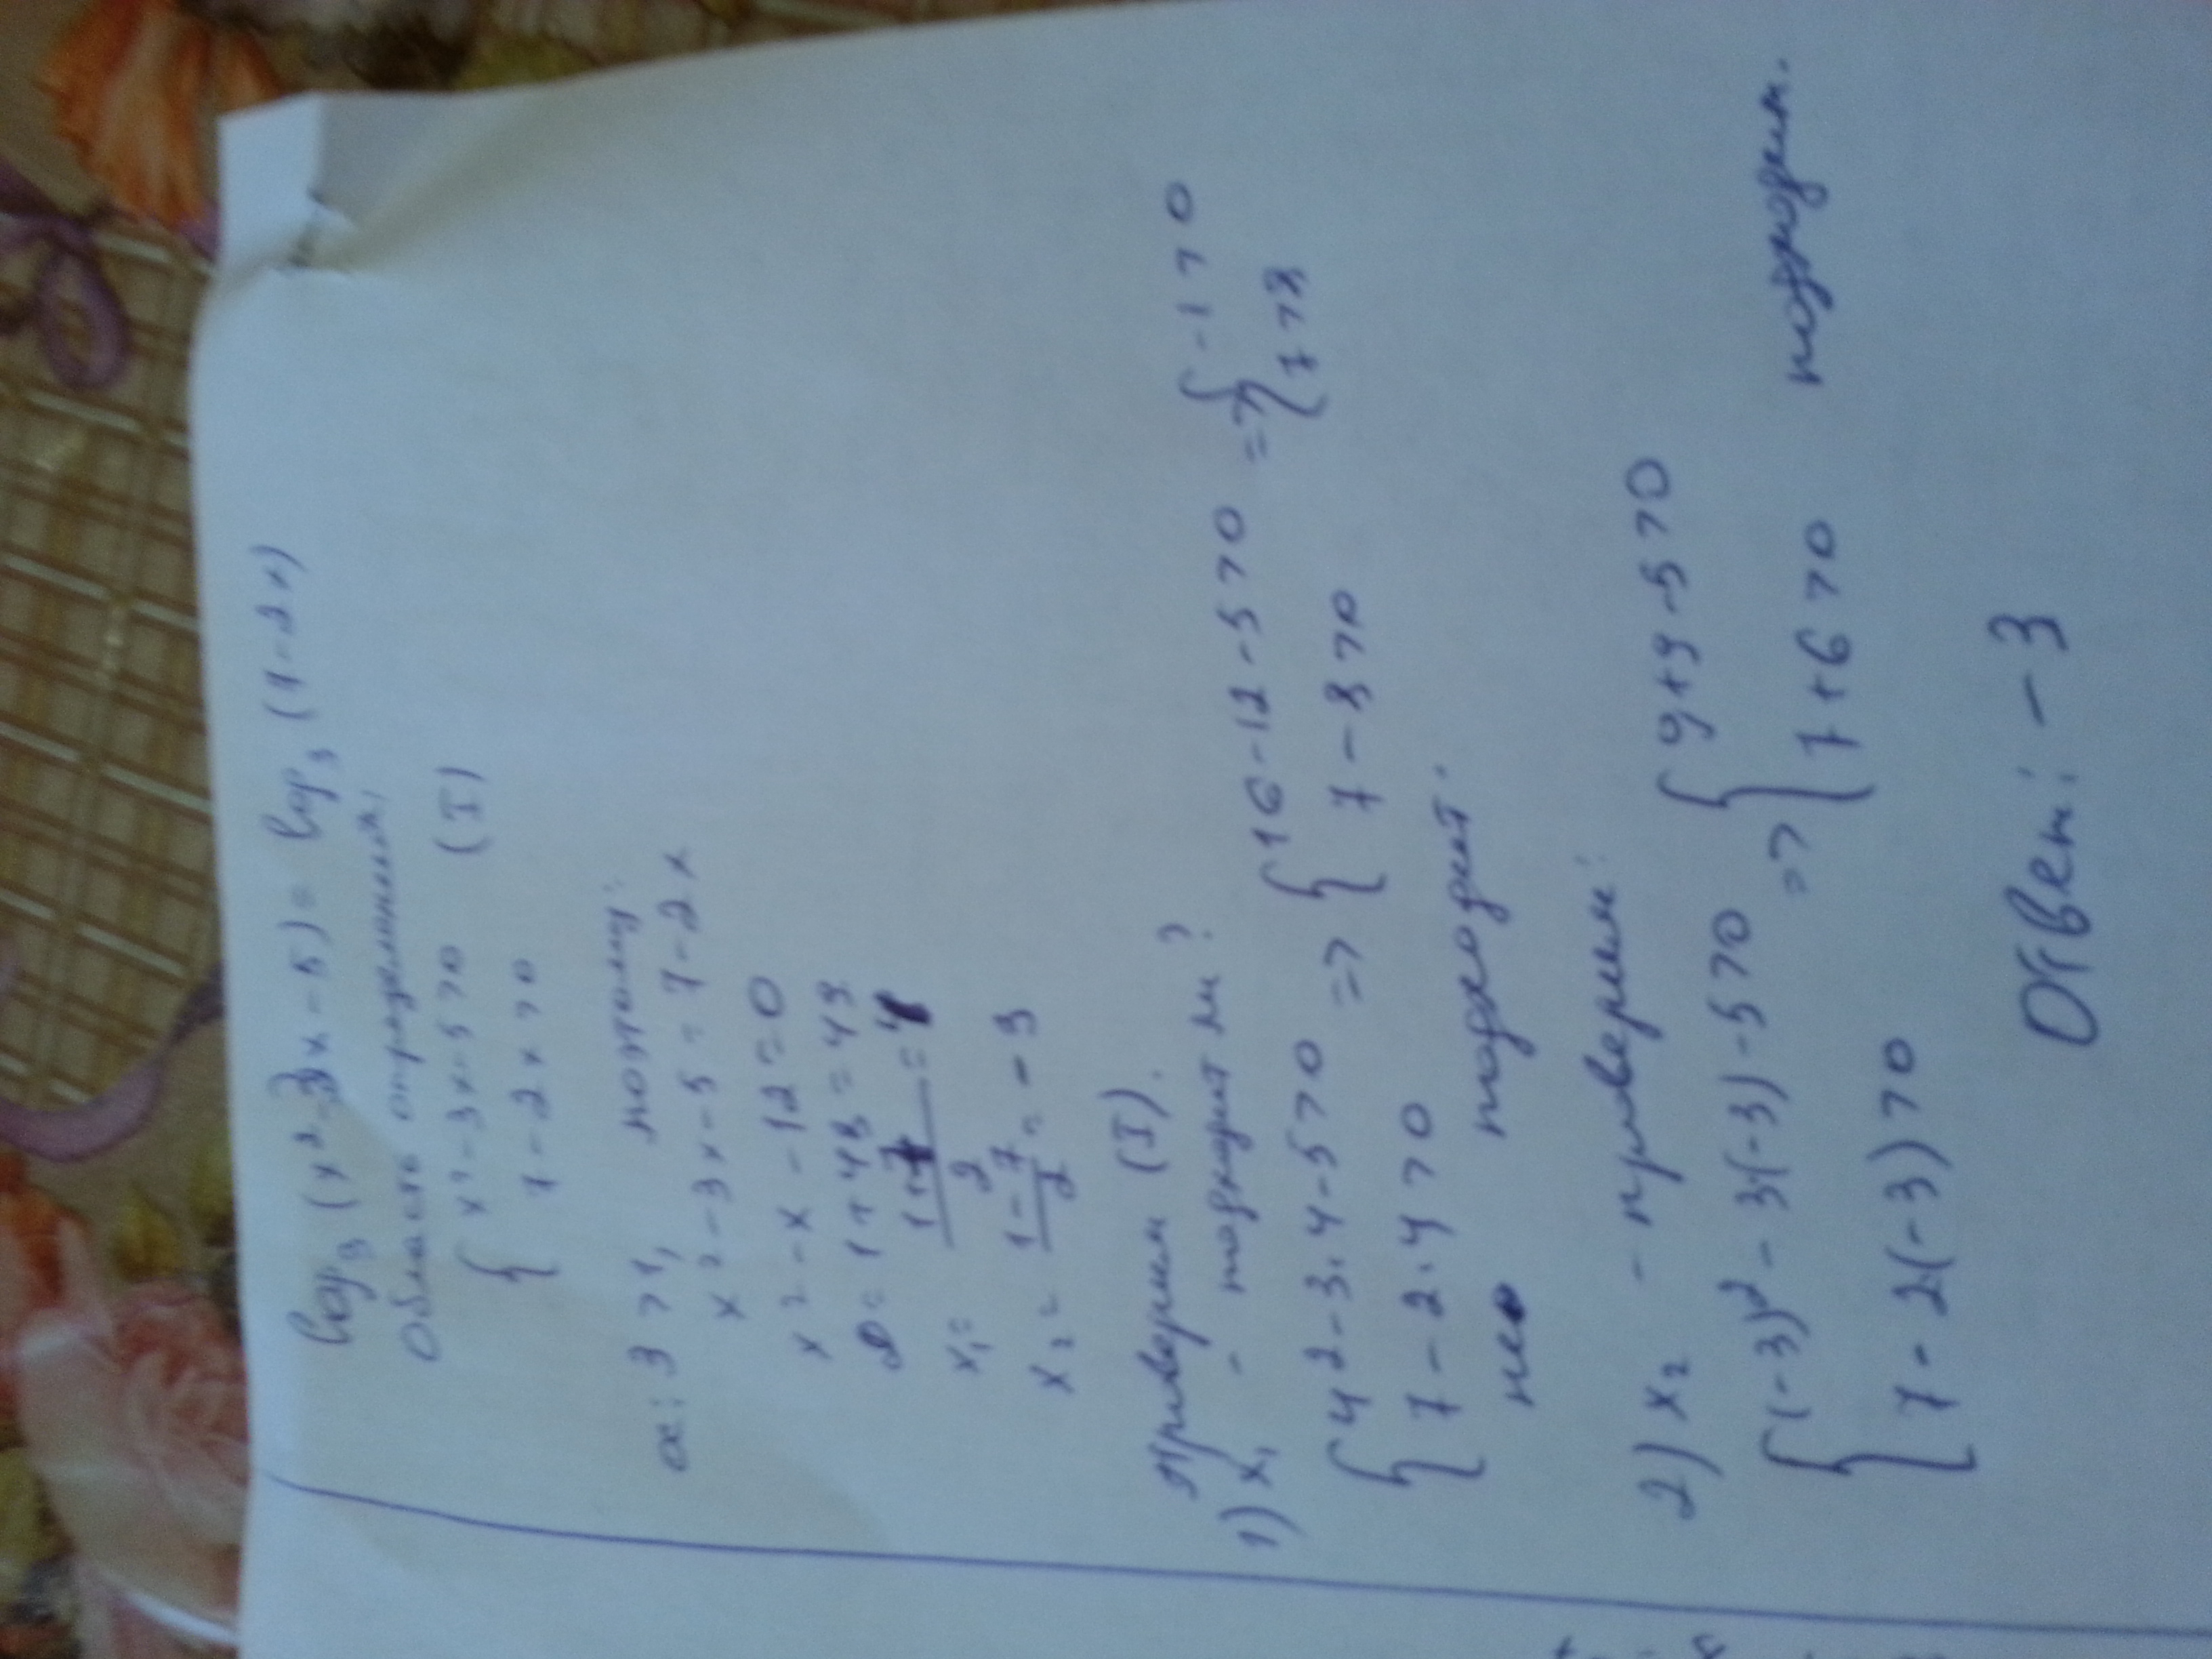 log₃ (x² - 3x - 5) = log₃ (7 - 2x)
Область определения:
{ x² - 3x - 5 > 0 (I)
7 - 2x > 0
a: 3 > 1, поэтому:
x² - 3x - 5 = 7 - 2x
x² - x - 12 = 0
D = 1 + 48 = 49
x₁ = (1+7)/2 = 4
x₂ = (1-7)/2 = -3
Проверим (I).
1) x₁ - подходит ли?
{ 4² - 3·4 - 5 > 0 => { 16 - 12 - 5 > 0 => { -1 > 0
7 - 2·4 > 0 7 - 8 > 0 7 > 8
не подходит.
2) x₂ - проверим:
{ (-3)² - 3(-3) - 5 > 0 => { 9 + 9 - 5 > 0
7 - 2(-3) > 0 7 + 6 > 0 подходит.
Ответ: -3